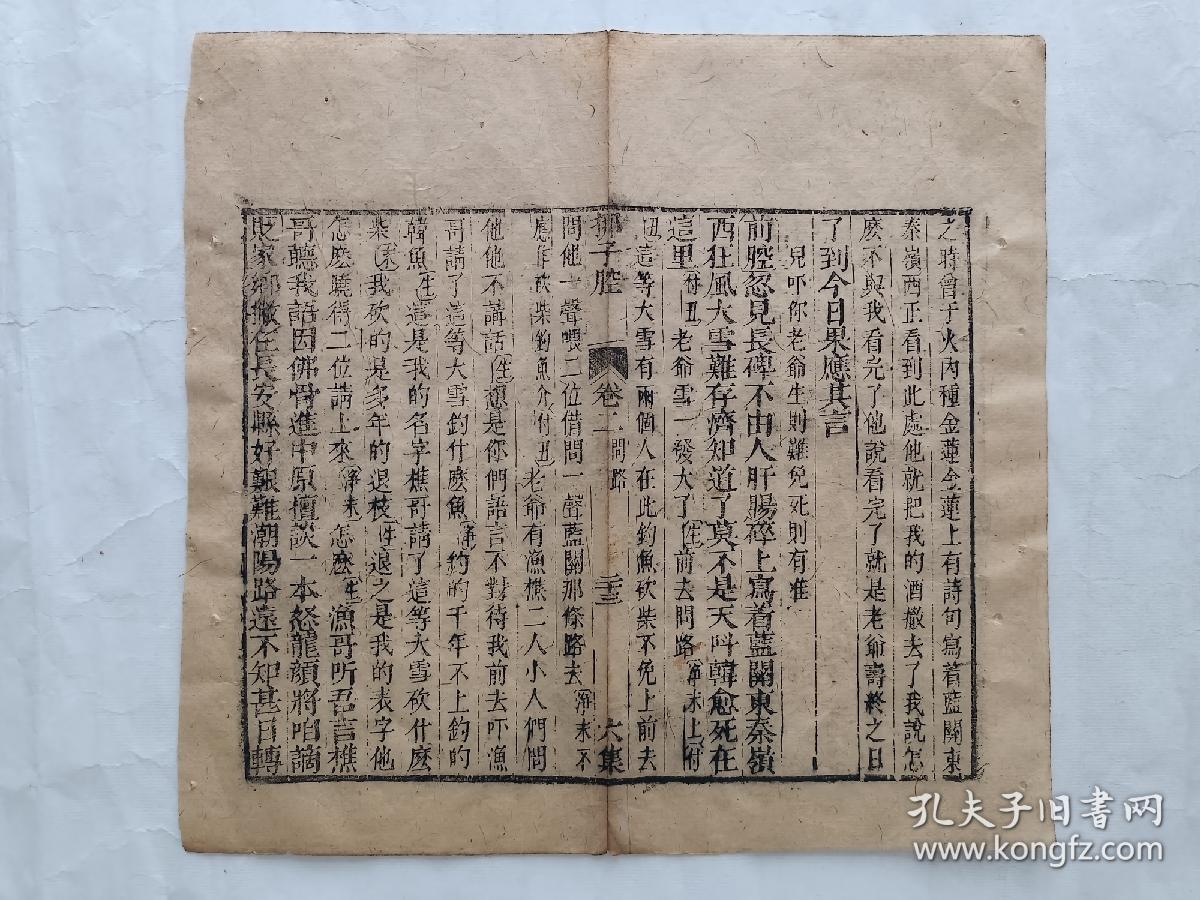 之時曾于火內種金蓮金蓮上有詩句寫着藍關東
秦嶺西正看到此處他就把我的酒撤去了我說怎
麽不與我看完了他說看完了就是老爺壽終之日
了到今日果應其言
兒吓你老爺生則難免死則有准
前腔忽見長碑不由人肝腸碎上寫着藍關東秦嶺
西狂風大雪難存濟知道了莫不是天呌韓愈死在
這里付丑老爺雪一發大了生前去問路淨末上付
丑這等大雪有兩個人在此釣魚砍柴不免上前去
梆子腔 卷二 問路 二十三 六集
問他一聲喂二位借問一聲藍關那條路去淨末不
應作砍柴釣魚介付丑老爺有漁樵二人小人們問
他他不講話生想是你們語言不對待我前去吓漁
哥請了這等大雪釣什麽魚淨釣的千年不上釣的
韓魚生這是我的名字樵哥請了這等大雪砍什麽
柴末我砍的是多年的退枝生退之是我的表字他
怎麽曉得二位請上來淨末怎麽生漁哥听吾言樵
哥聽我語因佛骨進中原擅談一本怒龍顏將咱謫
貶家鄉撇在長安縣好艱難潮陽路遠不知甚日轉
孔夫子旧书网
www.kongfz.com